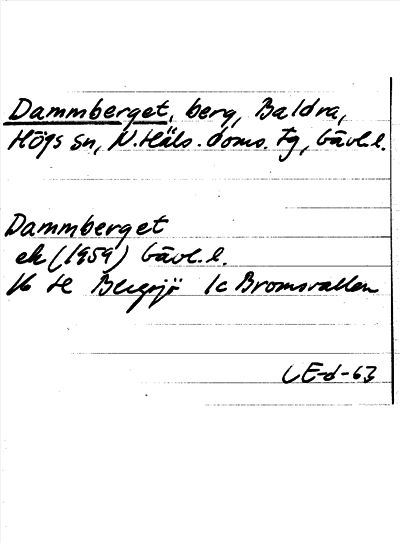 Dammberget, berg, Baldra,
Högs sn, N.Häls. doms. tg, Gävl.l.
Dammberget
ek (1959) Gävl.l.
16 H Bergsjö 1c Bromsvallen
CE-d-63